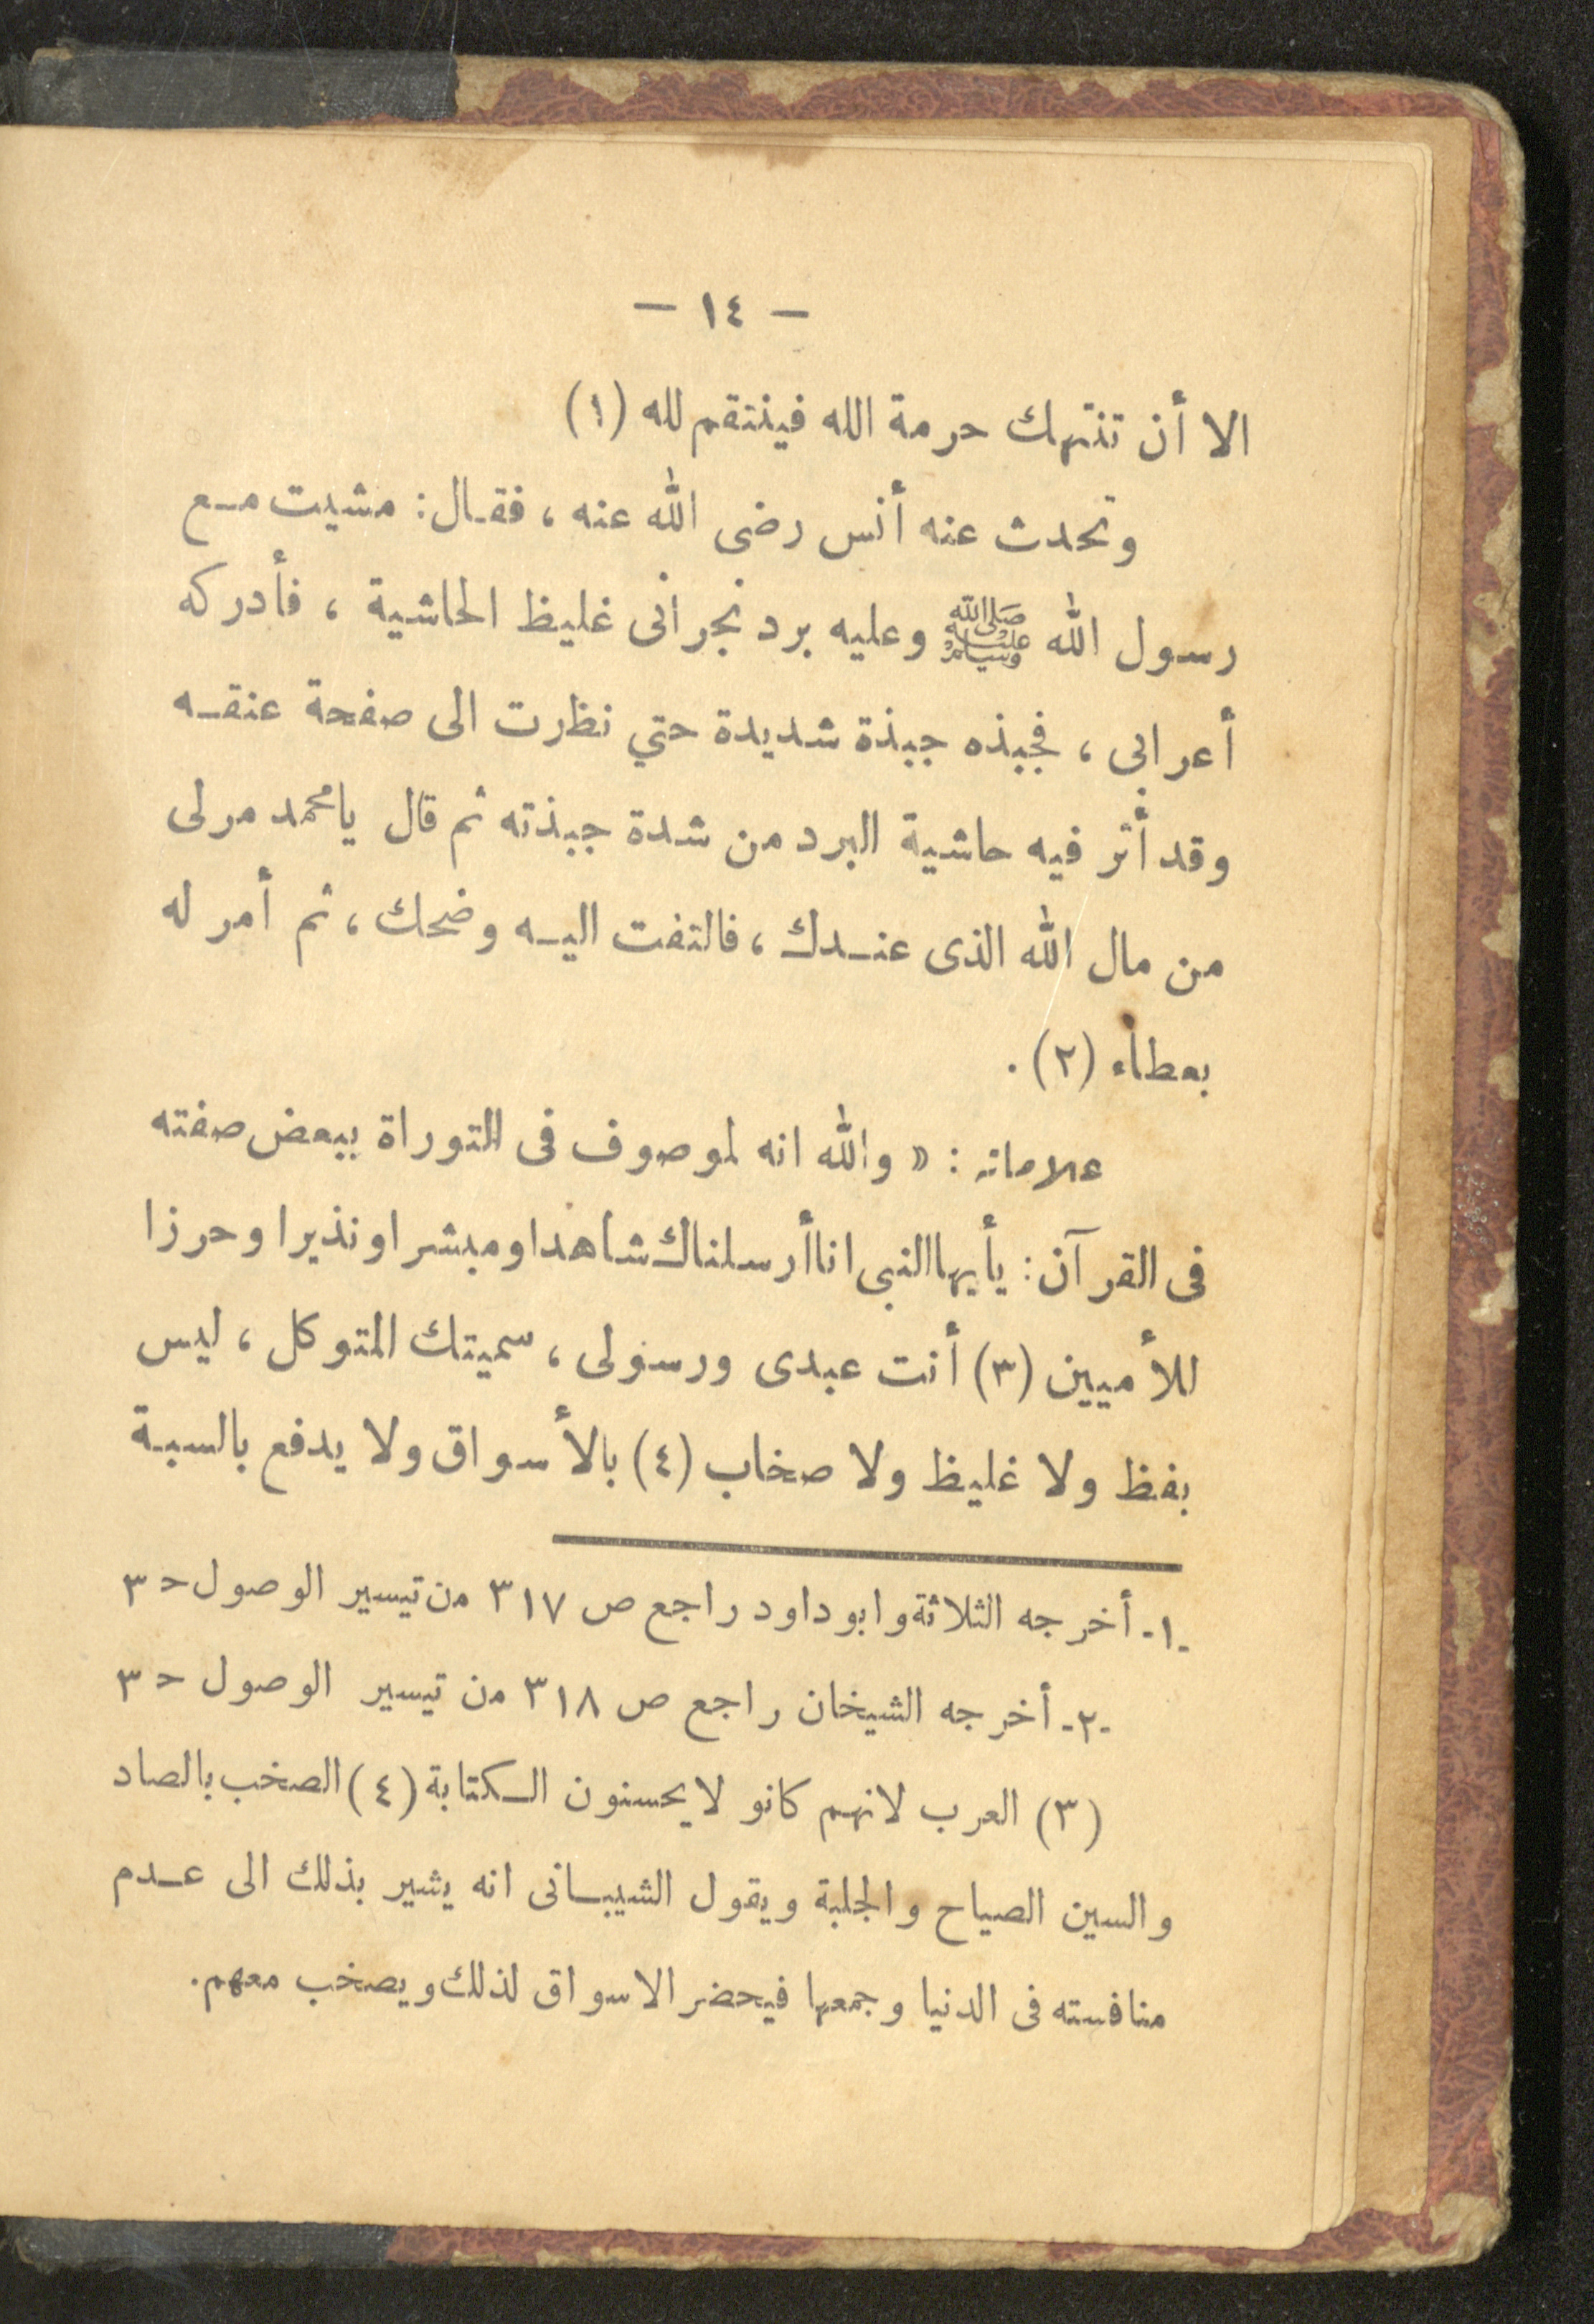 — ١٤ —
الا أن تنتهك حرمة الله فينتقم لله (١)
وتحدث عنه أنس رضى الله عنه ، فقـال : مشيت مـع
رسول الله ﷺ وعليه برد نجرانى غليظ الحاشية ، فأدركه
أعرابى ، فجبذه جبذة شديدة حتي نظرت الى صفحة عنقـه
وقد أثر فيه حاشية البرد من شدة جبذته ثم قال يامحمد مر لى
من مال الله الذى عنـدك ، فالتفت اليـه وضحك ، ثم أمر له
بعطاء (٢) .
علاماته : « والله انه لموصوف فى التوراة ببعض صفته
فى القرآن : يأيها النبى انا أرسلناك شاهدا ومبشرا ونذيرا وحرزا
للأميين (٣) أنت عبدى ورسولى ، سميتك المتوكل ، ليس
بفظ ولا غليظ ولا صخاب (٤) بالأسواق ولا يدفع بالسبة
-١- أخرجه الثلاثة وابو داود راجع ص ٣١٧ من تيسير الوصول حـ ٣
-٢- أخرجه الشيخان راجع ص ٣١٨ من تيسير الوصول حـ ٣
(٣) العرب لانهم كانو لايحسنون الـكتابة (٤) الصخب بالصاد
والسين الصياح والجلبة ويقول الشيبـانى انه يشير بذلك الى عـدم
منافسته فى الدنيا وجمعها فيحضر الاسواق لذلك ويصخب معهم.